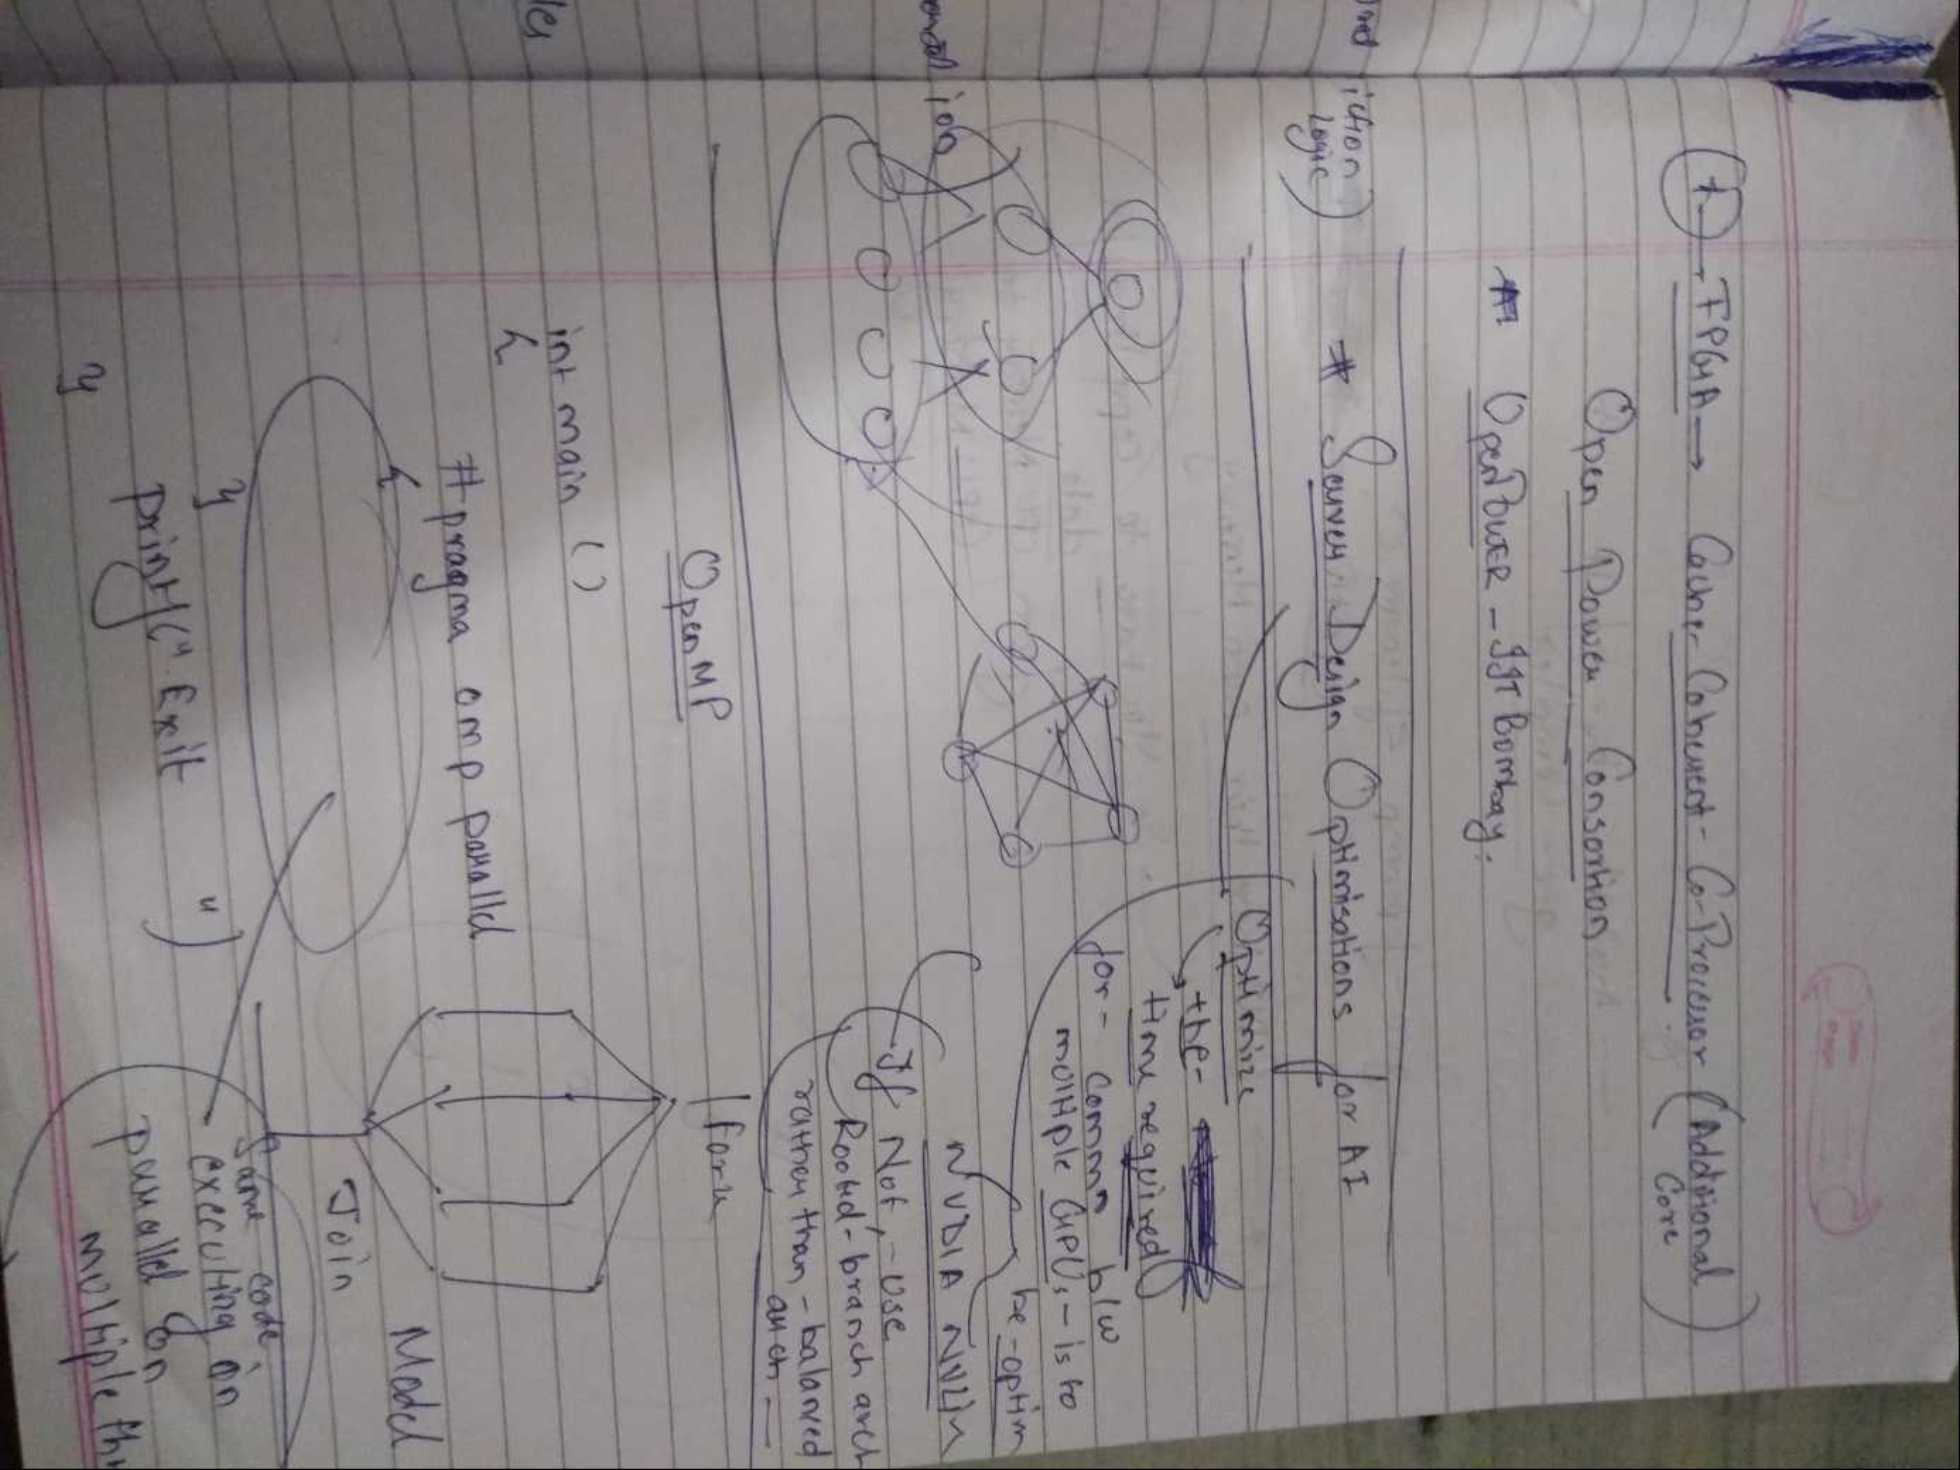 FPGA → Cache-Coherent-Co-Processor (Additional
Core)
Open Power Consortion
# OpenPOWER - IIT Bombay.
iction
Logic)
# Server Design Optimisations for AI
Optimize
the
time required
for - commn b/w
multiple GPUs - is to
be - optim
NVDIA NVLin
ion
If Not, - use
Rooted - branch arch
rather than - balanced
arch -
OpenMP
int main ()
{
# pragma omp parallel
{
}
printf(" Exit ")
}
fork
Join
Model
Same code
executing in
parallel on
multiple th